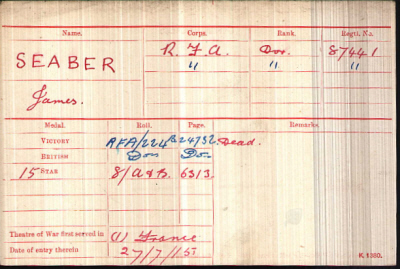 Name. Corps. Rank. Regtl. No.
SEABER R.F.A. Dvr. 87441
" " "
James.
Medal. Roll. Page. Remarks.
VICTORY RFA/224B 24732. Dead.
BRITISH Do Do
15 STAR 8/A&B. 6313.
Theatre of War first served in (1) France
Date of entry therein 27/7/15
K. 1380.